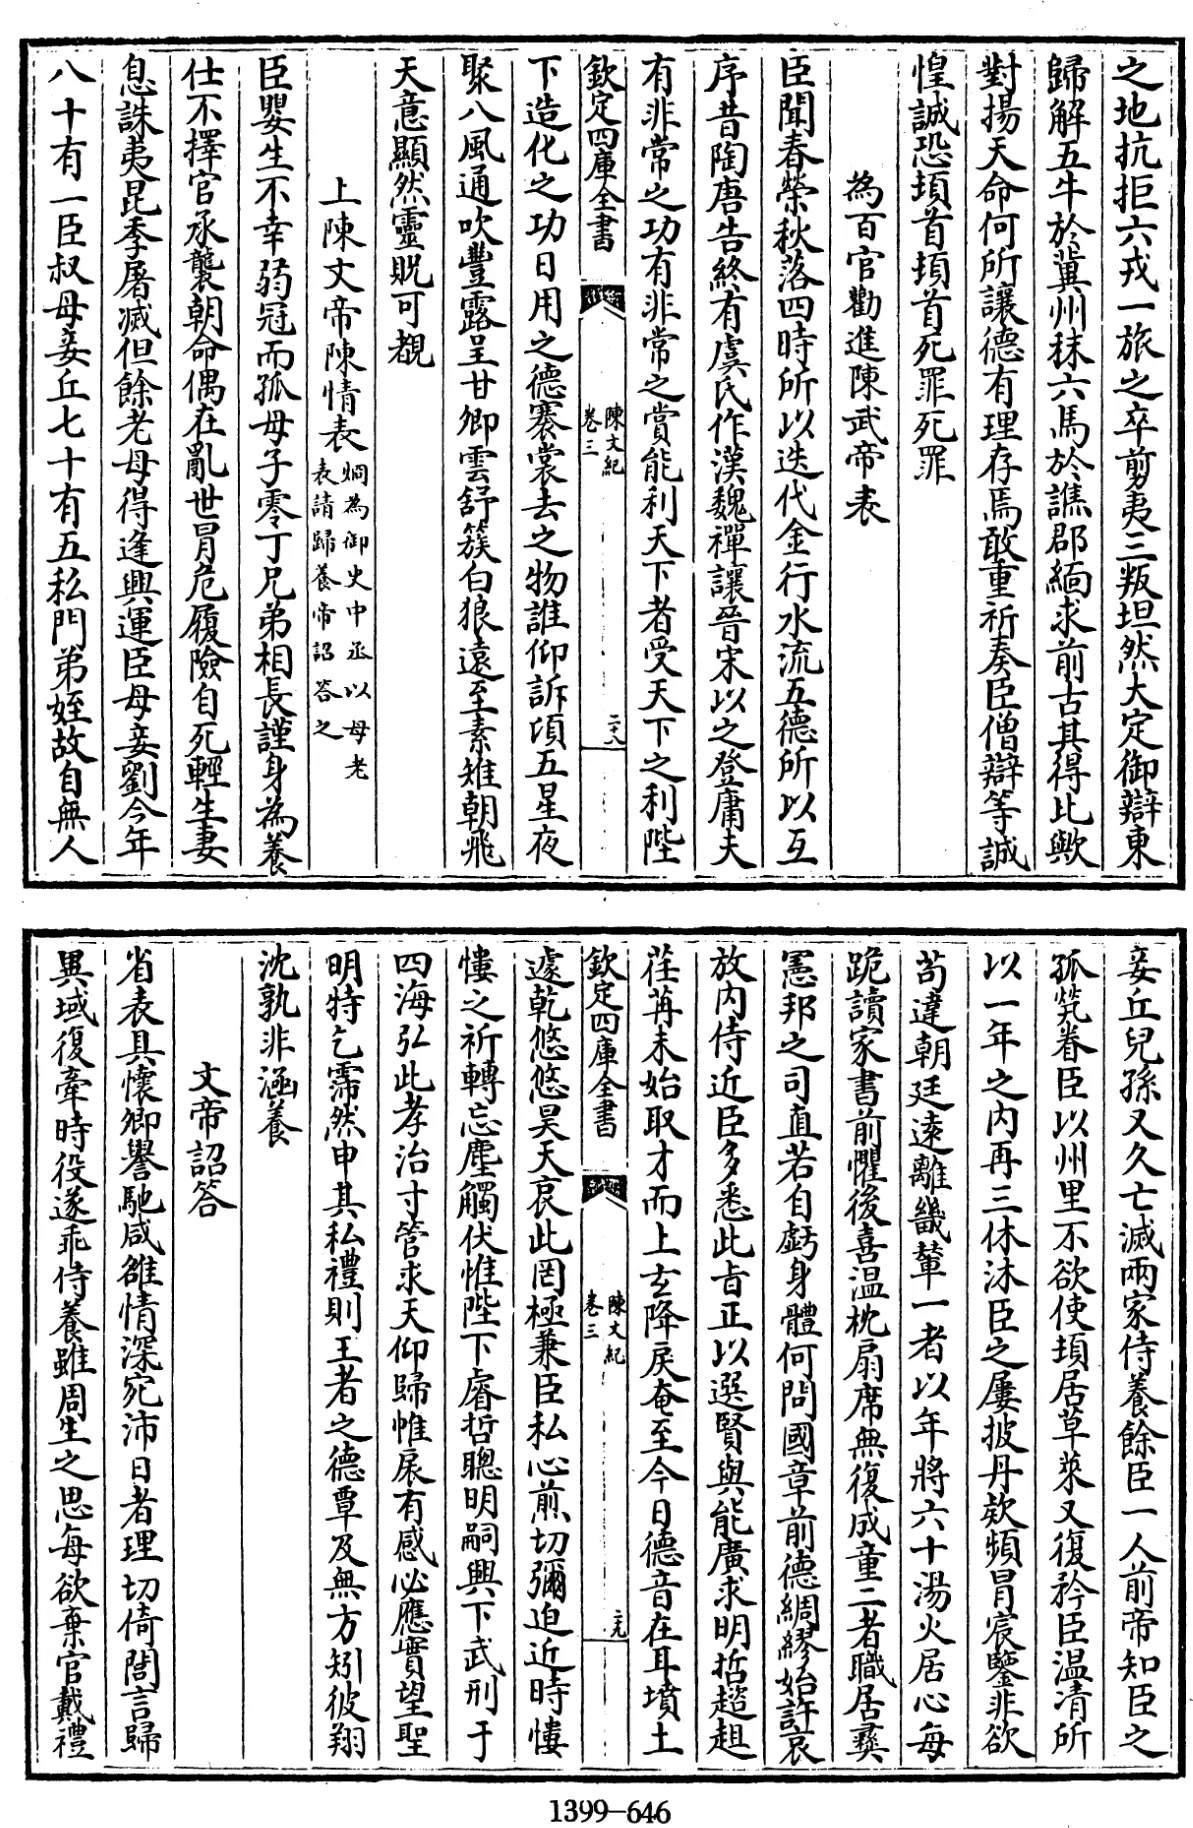 之地抗拒六戎一旅之卒剪夷三叛坦然大定御辯東
歸解五牛於冀州秣六馬於譙郡緬求前古其得比歟
對揚天命何所讓德有理存焉敢重祈奏臣僧辯等誠
惶誠恐頓首頓首死罪死罪
為百官勸進陳武帝表
臣聞春榮秋落四時所以迭代金行水流五德所以互
序昔陶唐告終有虞氏作漢魏禪讓晉宋以之登庸夫
有非常之功有非常之賞能利天下者受天下之利陛
欽定四庫全書
陳文紀
卷三
二十八
下造化之功日用之德褰裳去之物誰仰訴頃五星夜
聚八風通吹豐露呈甘卿雲舒簇白狼遠至素雉朝飛
天意顯然靈貺可覩
上陳文帝陳情表
烱為御史中丞以母老
表請歸養帝詔答之
臣嬰生不幸弱冠而孤母子零丁兄弟相長謹身為養
仕不擇官承襲朝命偶在亂世冒危履險自死輕生妻
息誅夷昆季屠滅但餘老母得逢興運臣母妾劉今年
八十有一臣叔母妾丘七十有五私門弟姪故自無人
妾丘兒孫又久亡滅兩家侍養餘臣一人前帝知臣之
孤煢眷臣以州里不欲使頓居草萊又復矜臣温凊所
以一年之內再三休沐臣之屢披丹欵頻冒宸鑒非欲
苟違朝廷遠離畿輦一者以年將六十湯火居心每
跪讀家書前懼後喜温枕扇席無復成童二者職居彛
憲邦之司直若自虧身體何問國章前德綢繆始許哀
放內侍近臣多悉此旨正以選賢與能廣求明哲趑趄
荏苒未始取才而上玄降戻奄至今日德音在耳墳土
欽定四庫全書
陳文紀
卷三
二十九
遽乾悠悠昊天哀此罔極兼臣私心煎切彌迫近時慺
慺之祈轉忘塵觸伏惟陛下睿哲聰明嗣興下武刑于
四海弘此孝治寸管求天仰歸惟扆有感必應實望聖
明特乞霈然申其私禮則王者之德覃及無方矧彼翔
沈孰非涵養
文帝詔答
省表具懷卿譽馳咸雒情深宛沛日者理切倚閭言歸
異域復牽時役遂乖侍養雖周生之思每欲棄官戴禮
1399-646